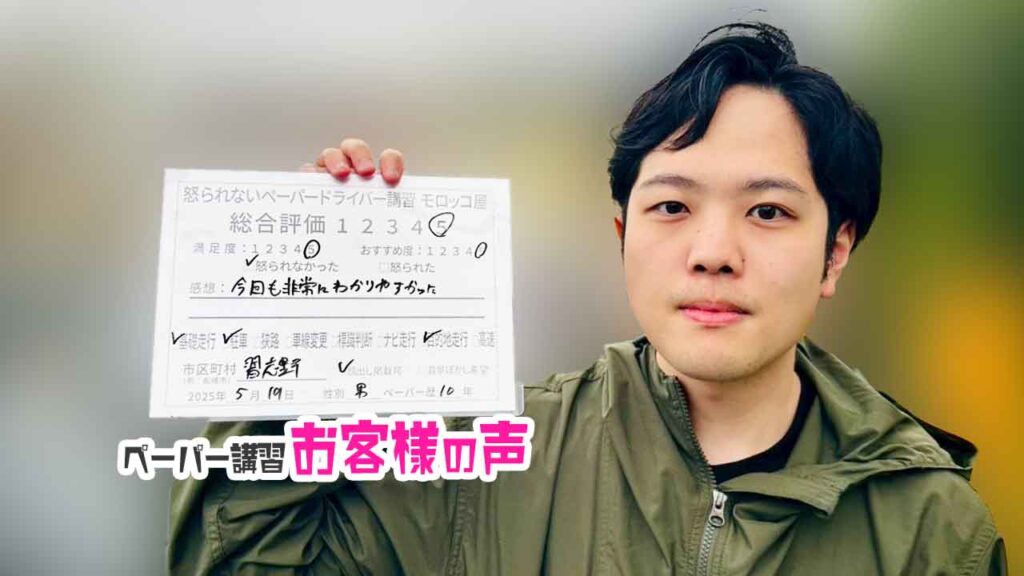 怒られないペーパードライバー講習 モロッコ屋
総合評価 1 2 3 4 5
満足度：1 2 3 4 5 おすすめ度：1 2 3 4
✓怒られなかった □怒られた
感想：今回も非常にわかりやすかった
✓基礎走行 ✓駐車 □狭路 □車線変更 □標識判断 □ナビ走行 ✓目的地走行 □高速
市区町村 習志野
2025年 5月 19日 性別 男 ペーパー歴 10年
ペーパー講習 お客様の声